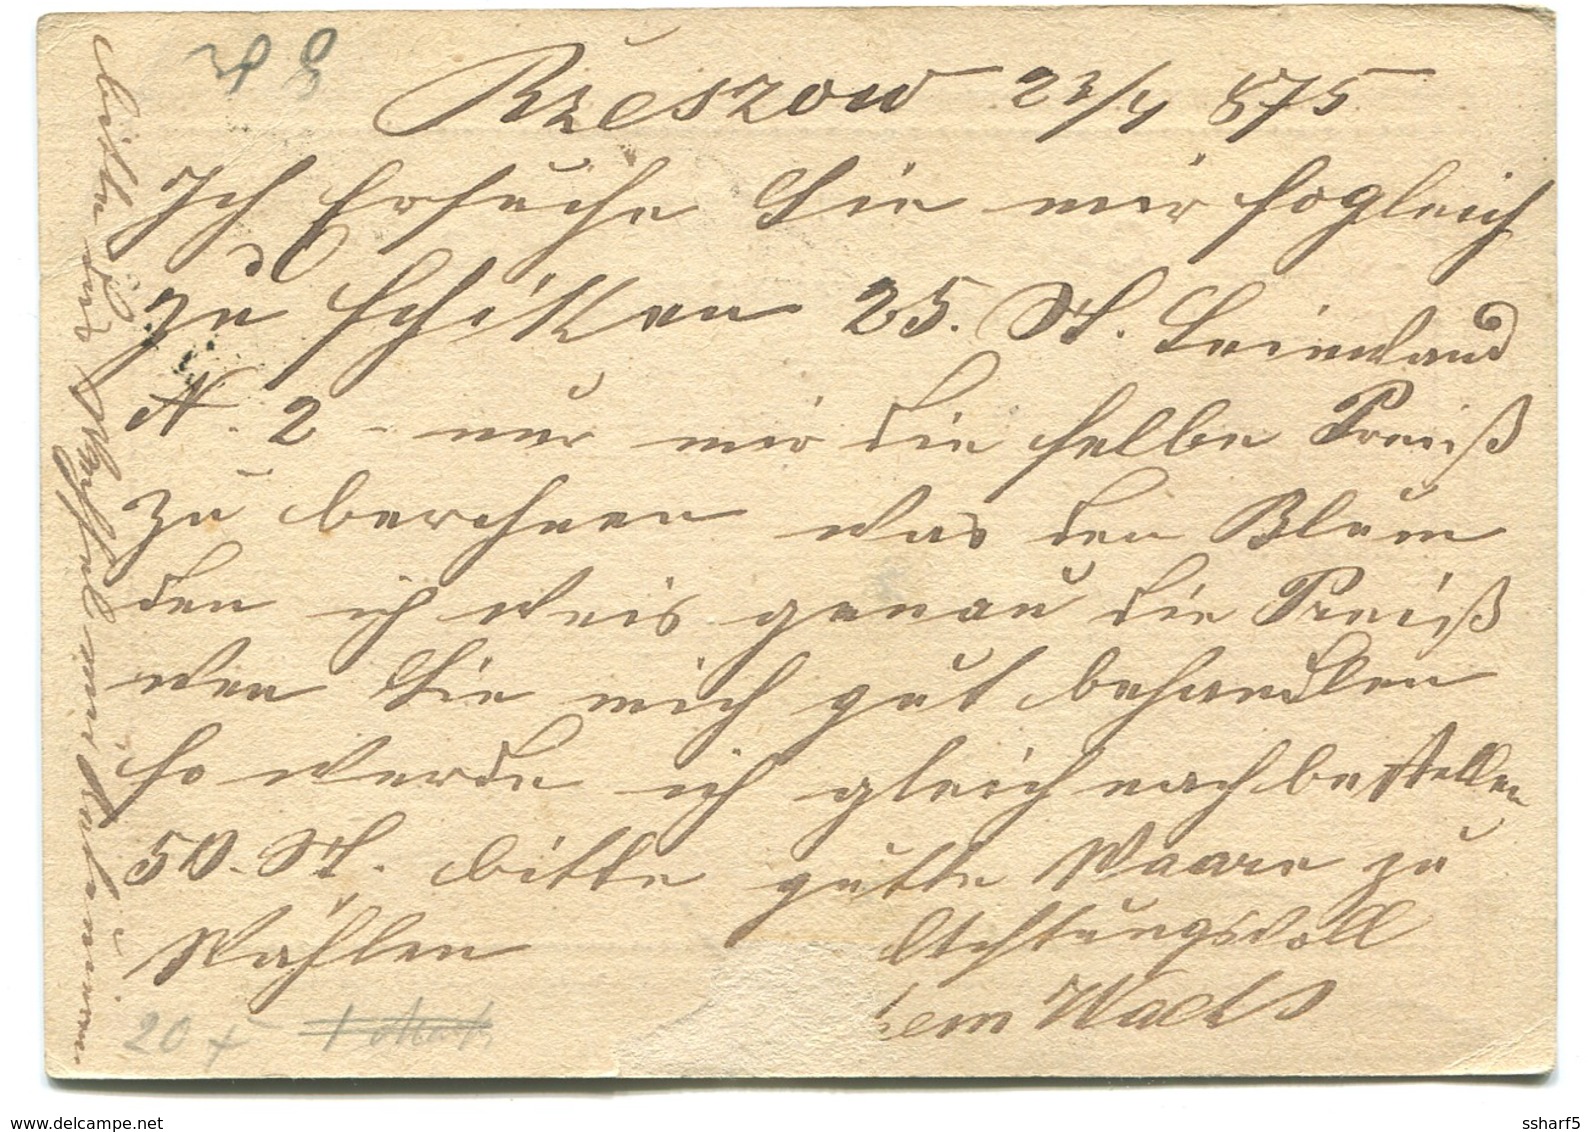 Rzeszow 23/4 875
Ich Ersuche Sie mir sogleich
zu schiken 25. St. Leinwand
N. 2 - nur mir die selbe Preiß
zu berchnen was den Blum
den ich weis genau die Preiß
wen Sie mich gut behandlen
so werde ich gleich nachbestellen
50. St. bitte gutte Waare zu
Wählen Achtungsvoll
bitte
20 x
www.delcampe.net
ssharf5